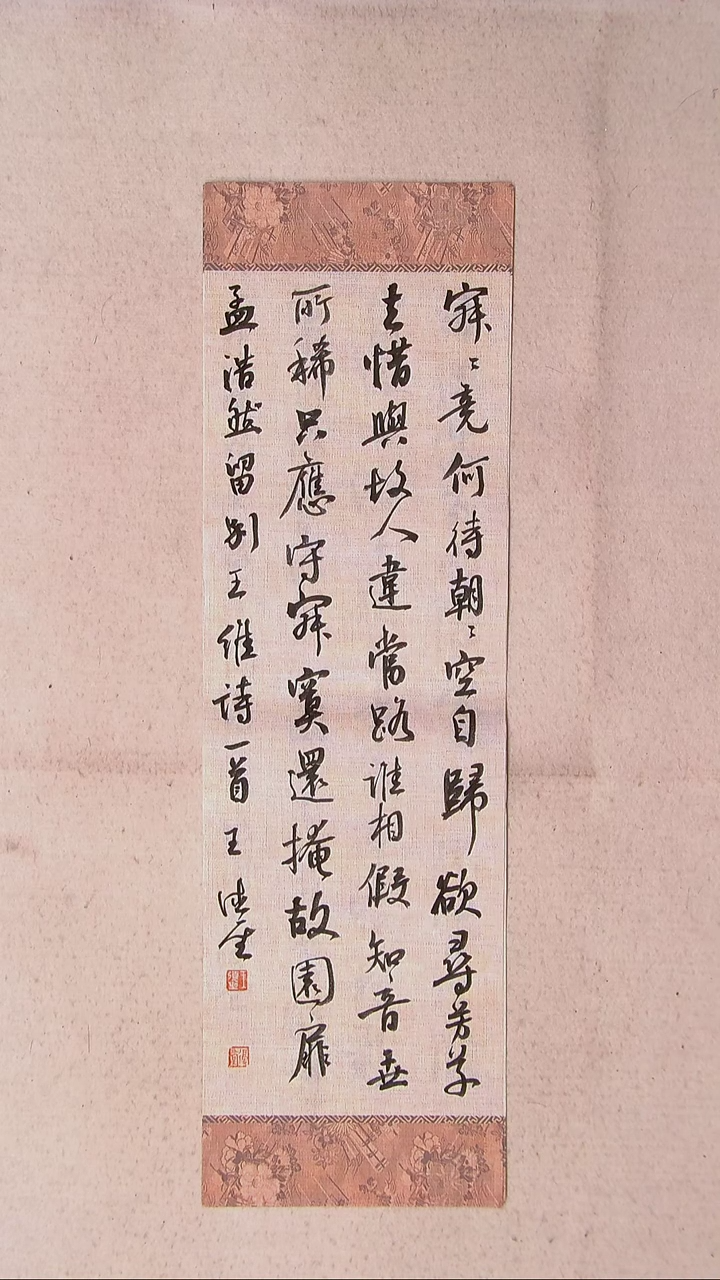 寂〻竟何待朝〻空自歸欲尋芳草
去惜與故人違當路誰相假知音世
所稀只應守寂寞還掩故園扉
孟浩然留別王維詩一首 王